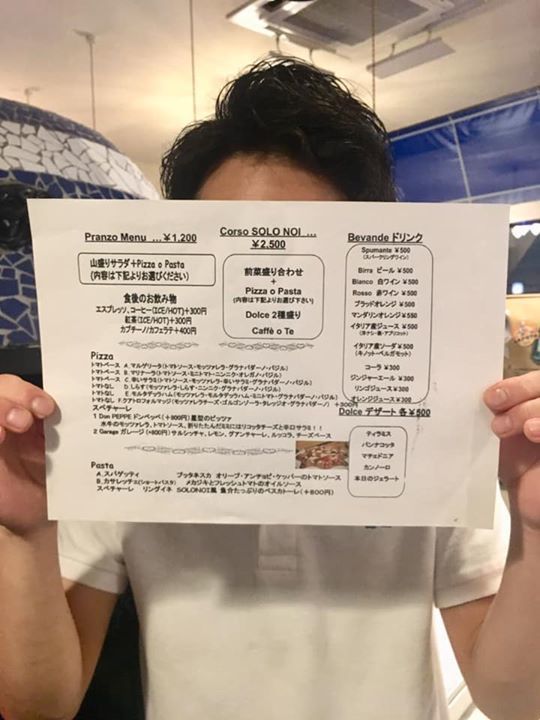 Pranzo Menu …￥1,200
山盛りサラダ+Pizza o Pasta
(内容は下記よりお選びください)
食後のお飲み物
エスプレッソ、コーヒー(ICE/HOT)+300円
紅茶(ICE/HOT)+300円
カプチーノ/カフェラテ+400円
Corso SOLO NOI …
￥2,500
前菜盛り合わせ
+
Pizza o Pasta
(内容は下記よりお選び下さい)
Dolce 2種盛り
Caffè o Te
Bevande ドリンク
Spumante ￥500
(スパークリングワイン)
Birra ビール ￥500
Bianco 白ワイン ￥500
Rosso 赤ワイン ￥500
ブラッドオレンジ ￥500
マンダリンオレンジ ￥550
イタリア産ジュース ￥500
(洋ナシ・桃・アプリコット)
イタリア産ソーダ ￥500
(キノット・ベルガモット)
コーラ ￥300
ジンジャーエール ￥300
リンゴジュース ￥300
オレンジジュース￥300
Pizza
トマトベース A マルゲリータ(トマトソース・モッツァレラ・グラナパダーノ・バジル)
トマトベース B マリナーラ(トマトソース・ミニトマト・ニンニク・オレガノ・バジル)
トマトベース C 辛いサラミ(トマトソース・モッツァレラ・辛いサラミ・グラナパダーノ・バジル)
トマトなし D しらす(モッツァレラ・しらす・ニンニク・グラナパダーノ・バジル)
トマトなし E モルタデッラハム(モッツァレラ・モルタデッラハム・ミニトマト・グラナパダーノ・バジル)
トマトなし F クアトロフォルマッジ(モッツァレラチーズ・ゴルゴンゾーラ・タレッジオ・グラナパダーノ) +300円
スペチャーレ
1 Don PEPPE ドンペッペ(+800円) 星型のピッツァ
水牛のモッツァレラ、トマトソース、折りたたんだミミにはリコッタチーズと辛口サラミ！！
2 Garage ガレージ (+800円) サルシッチャ、レモン、グアンチャーレ、ルッコラ、チーズベース
Dolce デザート 各￥500
ティラミス
パンナコッタ
マチェドニア
カンノーロ
本日のジェラート
Pasta
A.スパゲッティ プッタネスカ オリーブ・アンチョビ・ケッパーのトマトソース
B.カサレッチェ(ショートパスタ) メカジキとフレッシュトマトのオイルソース
スペチャーレ リングイネ SOLONOI風 魚介たっぷりのペスカトーレ(+800円)